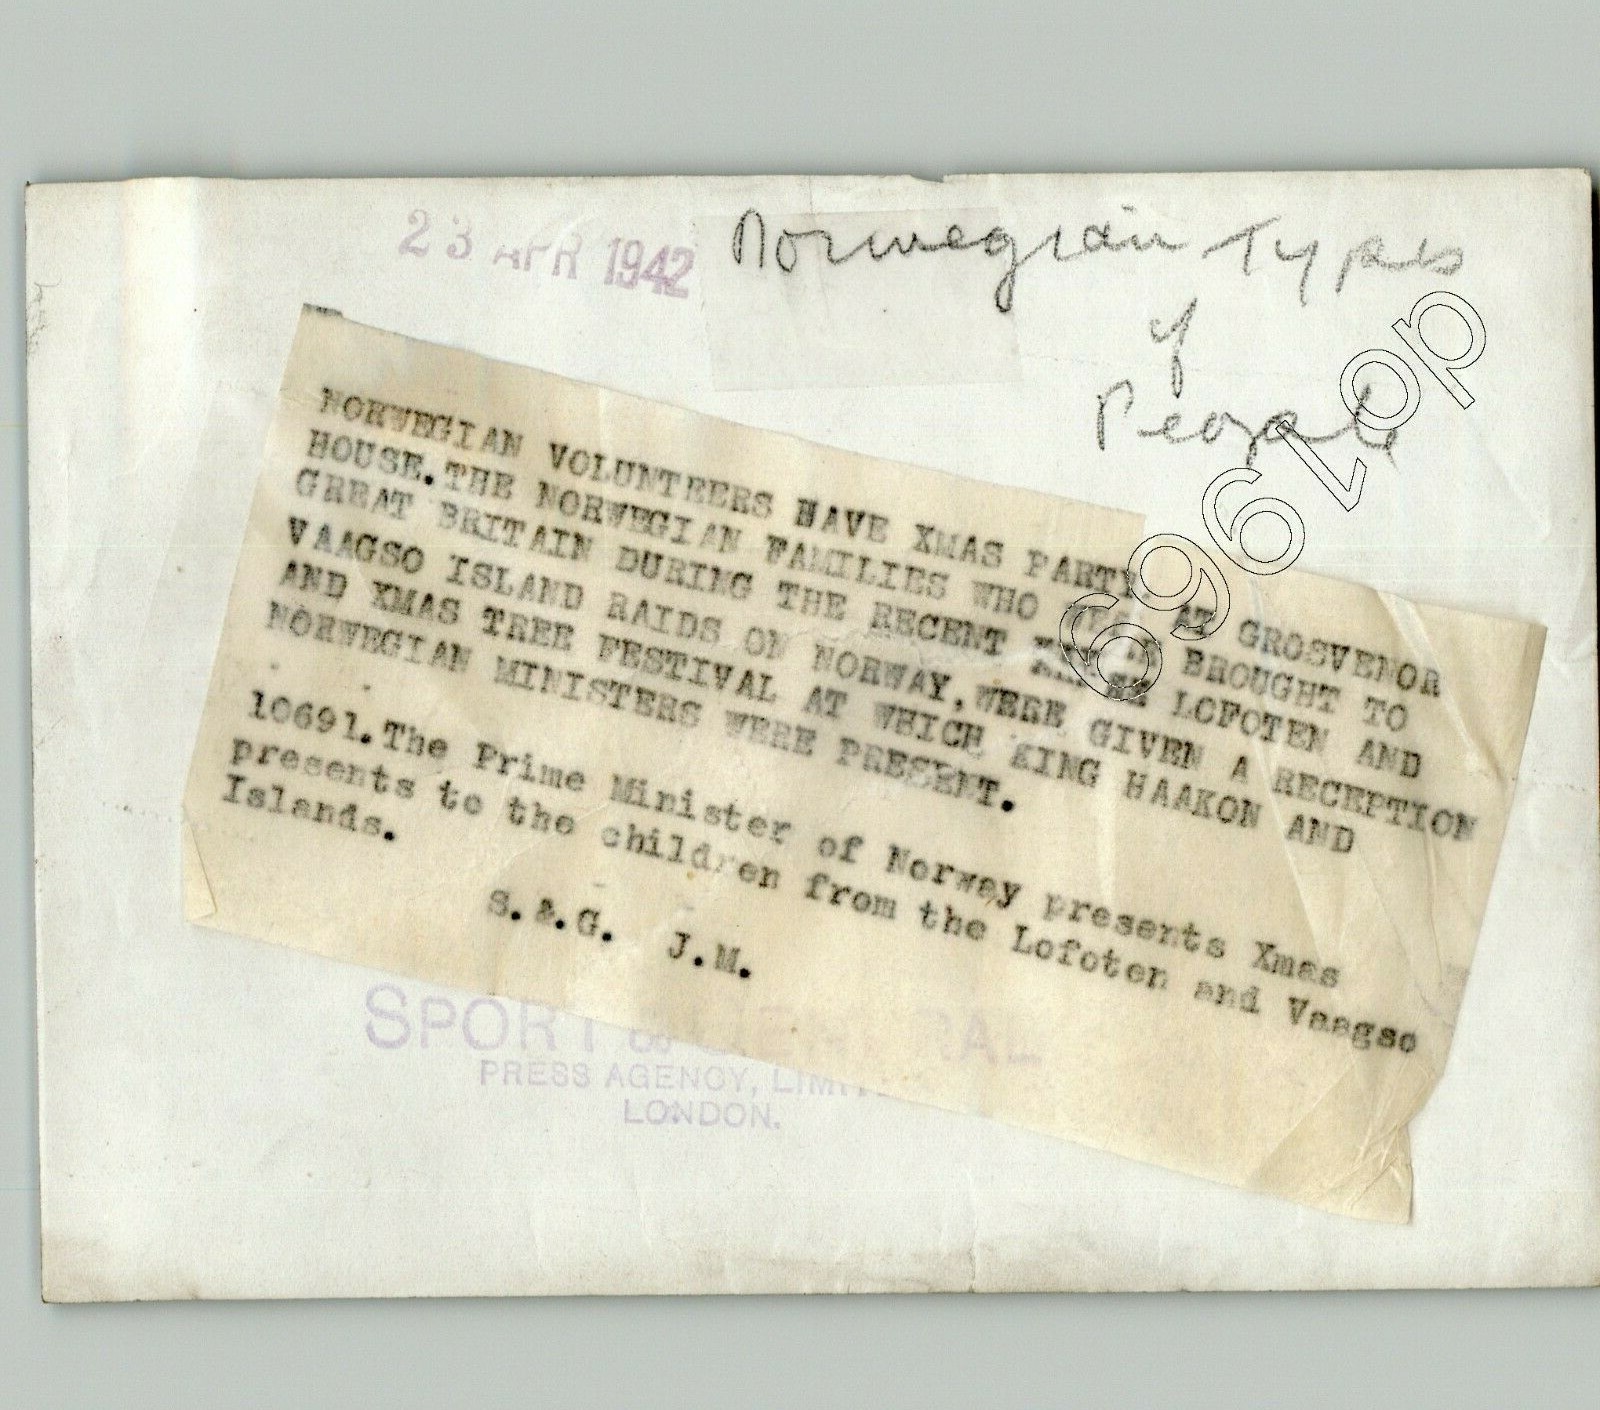 23 APR 1942
Norwegian Types
of
People
NORWEGIAN VOLUNTEERS HAVE XMAS PARTY. AT GROSVENOR
HOUSE. THE NORWEGIAN FAMILIES WHO WERE BROUGHT TO
GREAT BRITAIN DURING THE RECENT LOFOTEN AND
VAAGSO ISLAND RAIDS ON NORWAY, WERE GIVEN A RECEPTION
AND XMAS TREE FESTIVAL AT WHICH KING HAAKON AND
NORWEGIAN MINISTERS WERE PRESENT.
10691. The Prime Minister of Norway presents Xmas
presents to the children from the Lofoten and Vaagso
Islands.
S.&.G. J.M.
SPORT & GENERAL
PRESS AGENCY, LIMITED
LONDON.
do1969